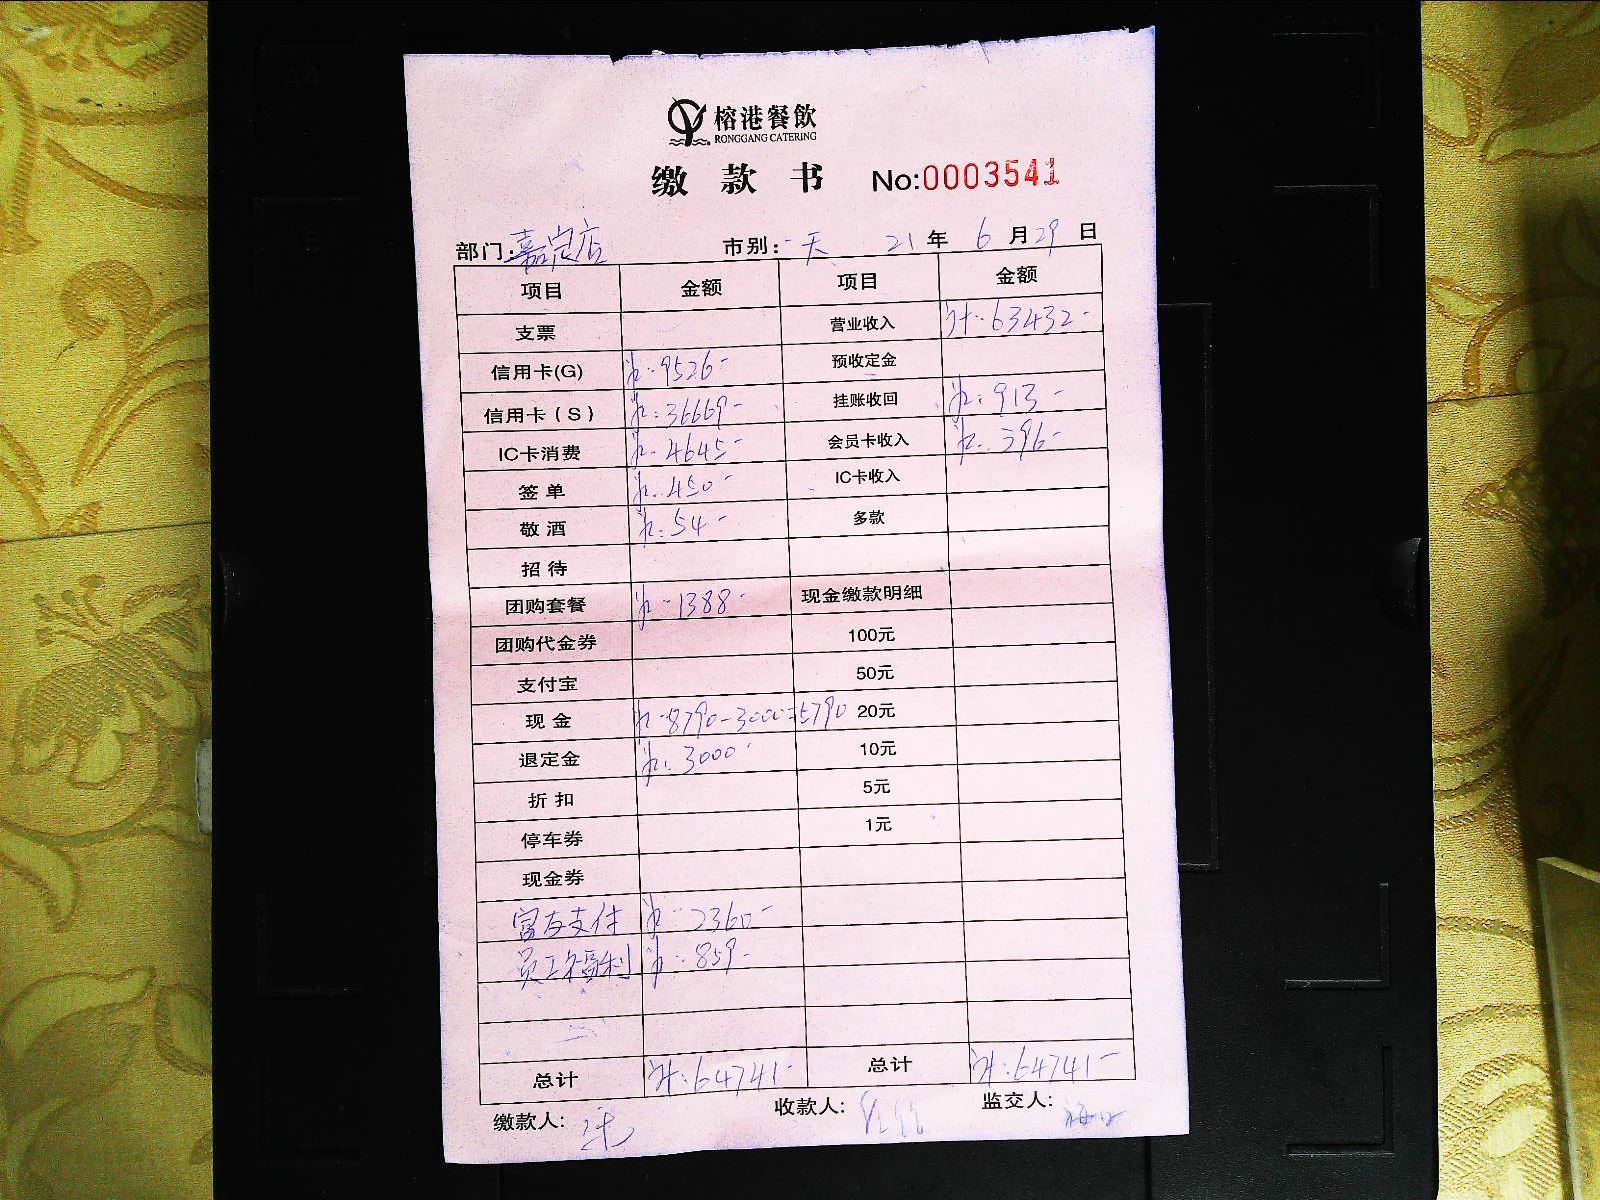 榕港餐飲
RONGGANG CATERING
缴款书 No:0003541
部门:嘉定店 市别:一天 21年6月29日
项目 金额 项目 金额
支票 营业收入 计:63432-
信用卡(G) 9526- 预收定金
信用卡(S) 36669- 挂账收回 913-
IC卡消费 4645- 会员卡收入 396-
签单 450- IC卡收入
敬酒 54- 多款
招待
团购套餐 1388- 现金缴款明细
团购代金券 100元
支付宝 50元
现金 8790-3000=5790 20元
退定金 3000- 10元
折扣 5元
停车券 1元
现金券
富友支付 2360-
员工福利 859-
总计 计:64741- 总计 计:64741-
缴款人: 收款人: 监交人: